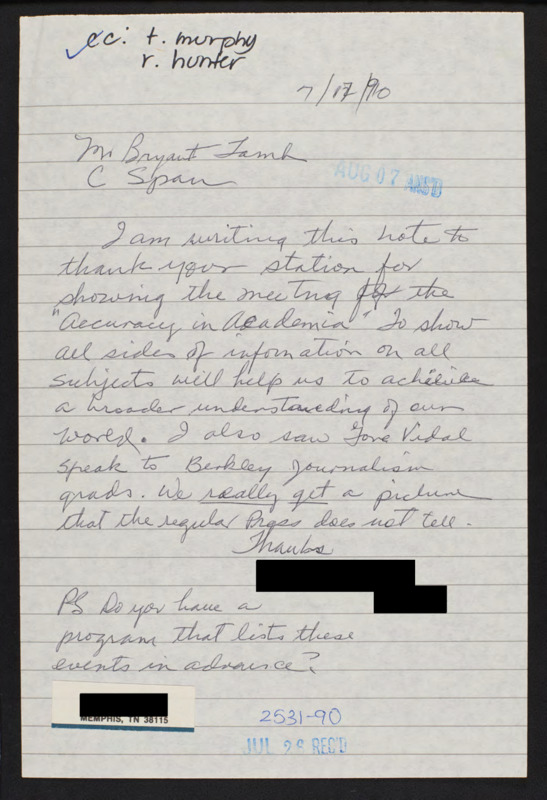 cc: t. murphy
r. hunter
7/17/90
Mr Bryant Lamb
C Span
AUG 07 ANS'D
I am writing this note to
thank your station for
showing the meeting for the
"Accuracy in Academia" To show
all sides of information on all
subjects will help us to achieve
a broader understanding of our
world. I also saw Gore Vidal
speak to Berkley Journalism
grads. We really get a picture
that the regular Press does not tell.
Thanks
PS Do you have a
program that lists these
events in advance?
MEMPHIS, TN 38115
2531-90
JUL 26 REC'D